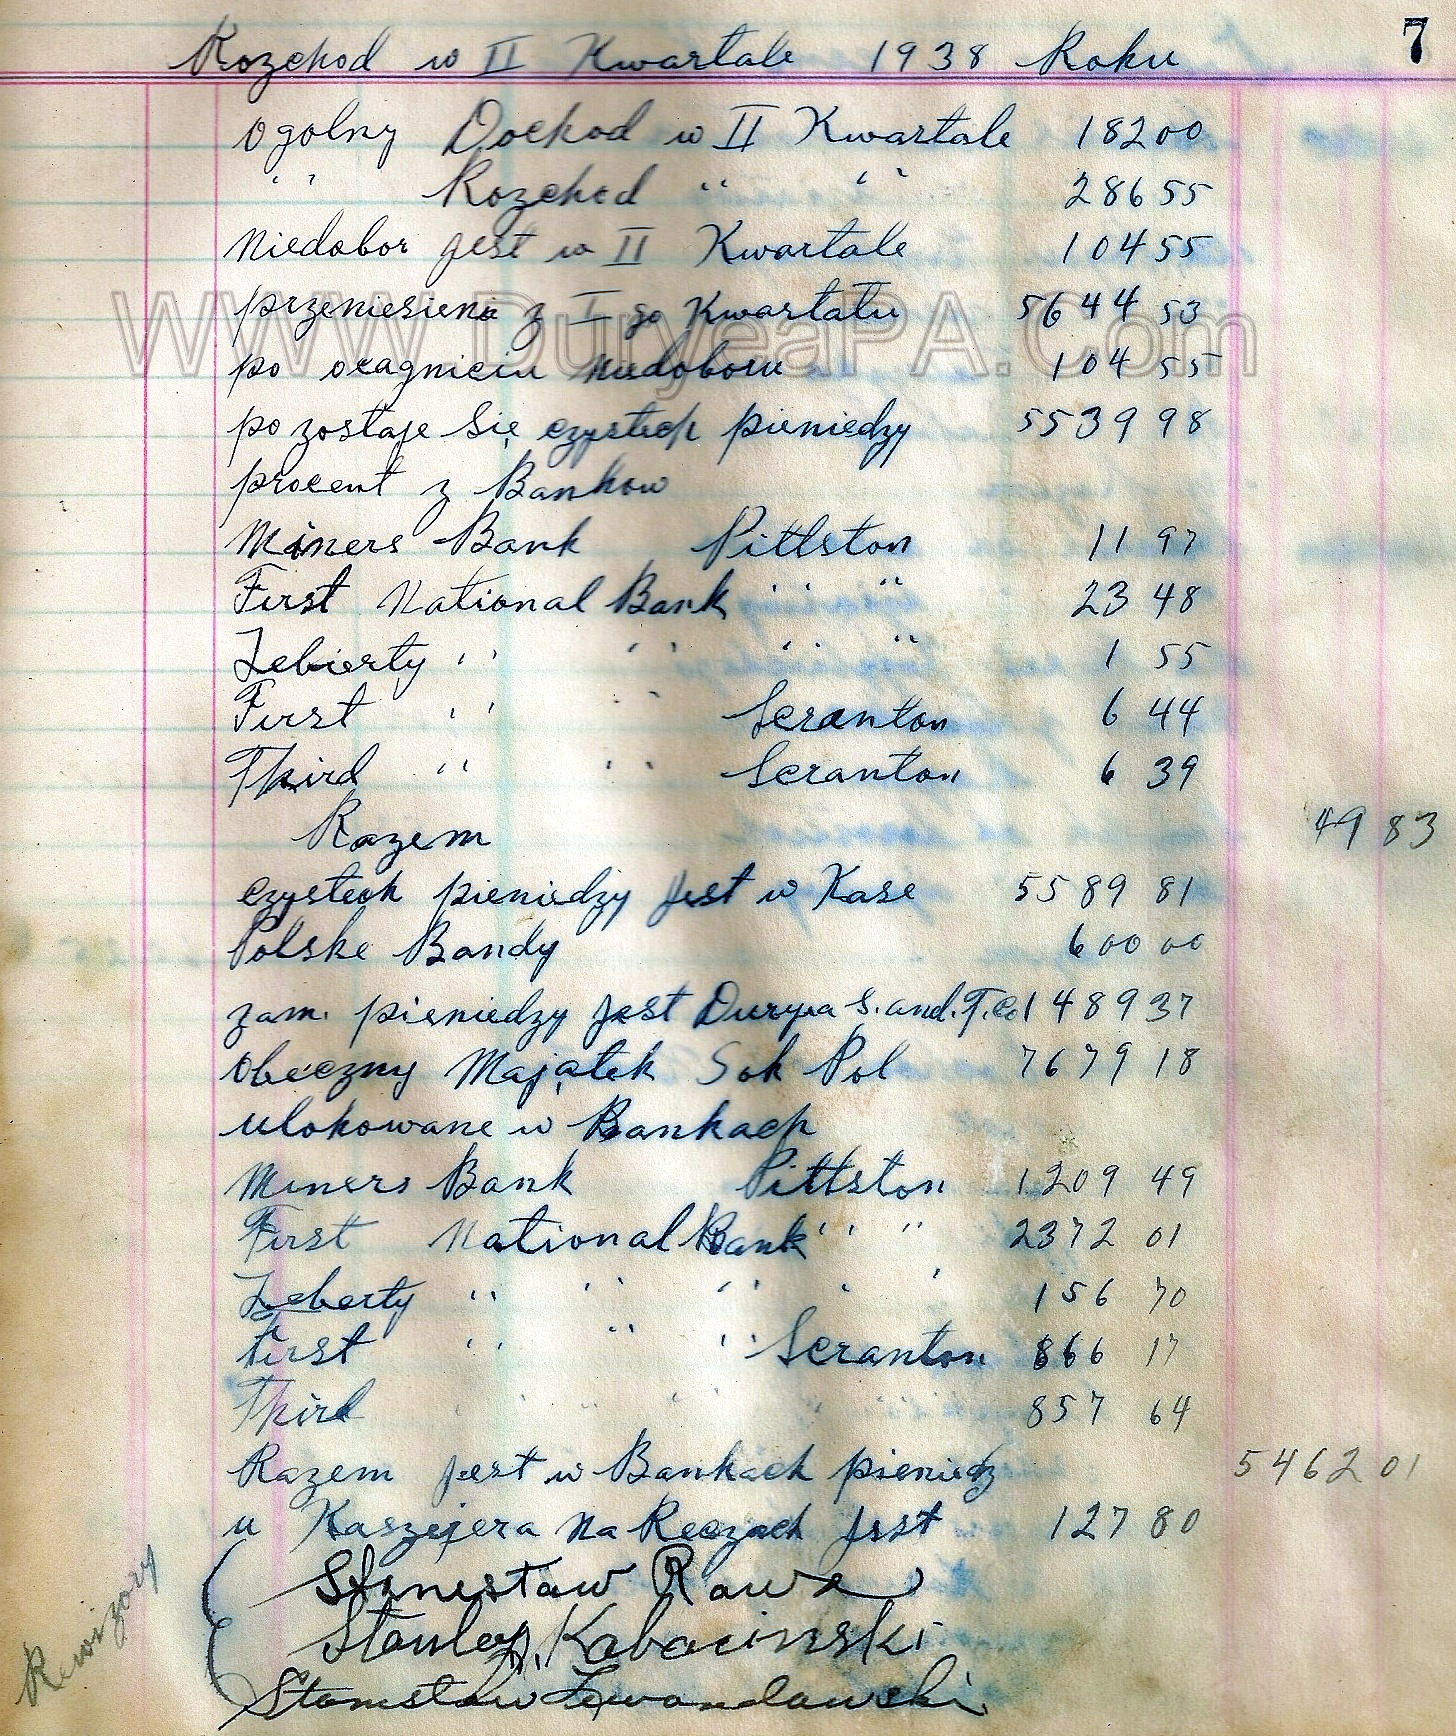 7
Rozchod w II Kwartale 1938 Roku
Ogolny Dochod w II Kwartale 182 00
" " Rozchod " " 286 55
Niedobor jest w II Kwartale 104 55
przeniesiene z I-go Kwartatu 5644 53
po ocagnieciu niedoboru 104 55
pozostaje się czystech pieniedzy 5539 98
procent z Bankow
Miners Bank Pittston 11 97
First National Bank " " 23 48
Lebierty " " " " 1 55
First " " Scranton 6 44
Third " " Scranton 6 39
Razem 49 83
czystech pieniedzy jest w Kase 5589 81
Polske Bandy 600 00
zam. pieniedzy jest Duryea S. and. T. Co 1489 37
Obeczny Majątek Sok Pol 7679 18
ulokowane w Bankach
Miners Bank Pittston 1209 49
First National Bank " " 2372 01
Leberty " " " " " 156 70
First " " " Scranton 866 17
Third " " " " " 857 64
Razem jest w Bankach pieniedz 5462 01
u Kaszejera na Reczach jest 127 80
Stanestaw Rawa
Stanley Kabacinski
Stanistaw Lewandawski
Rewizory
www.DuryeaPA.Com